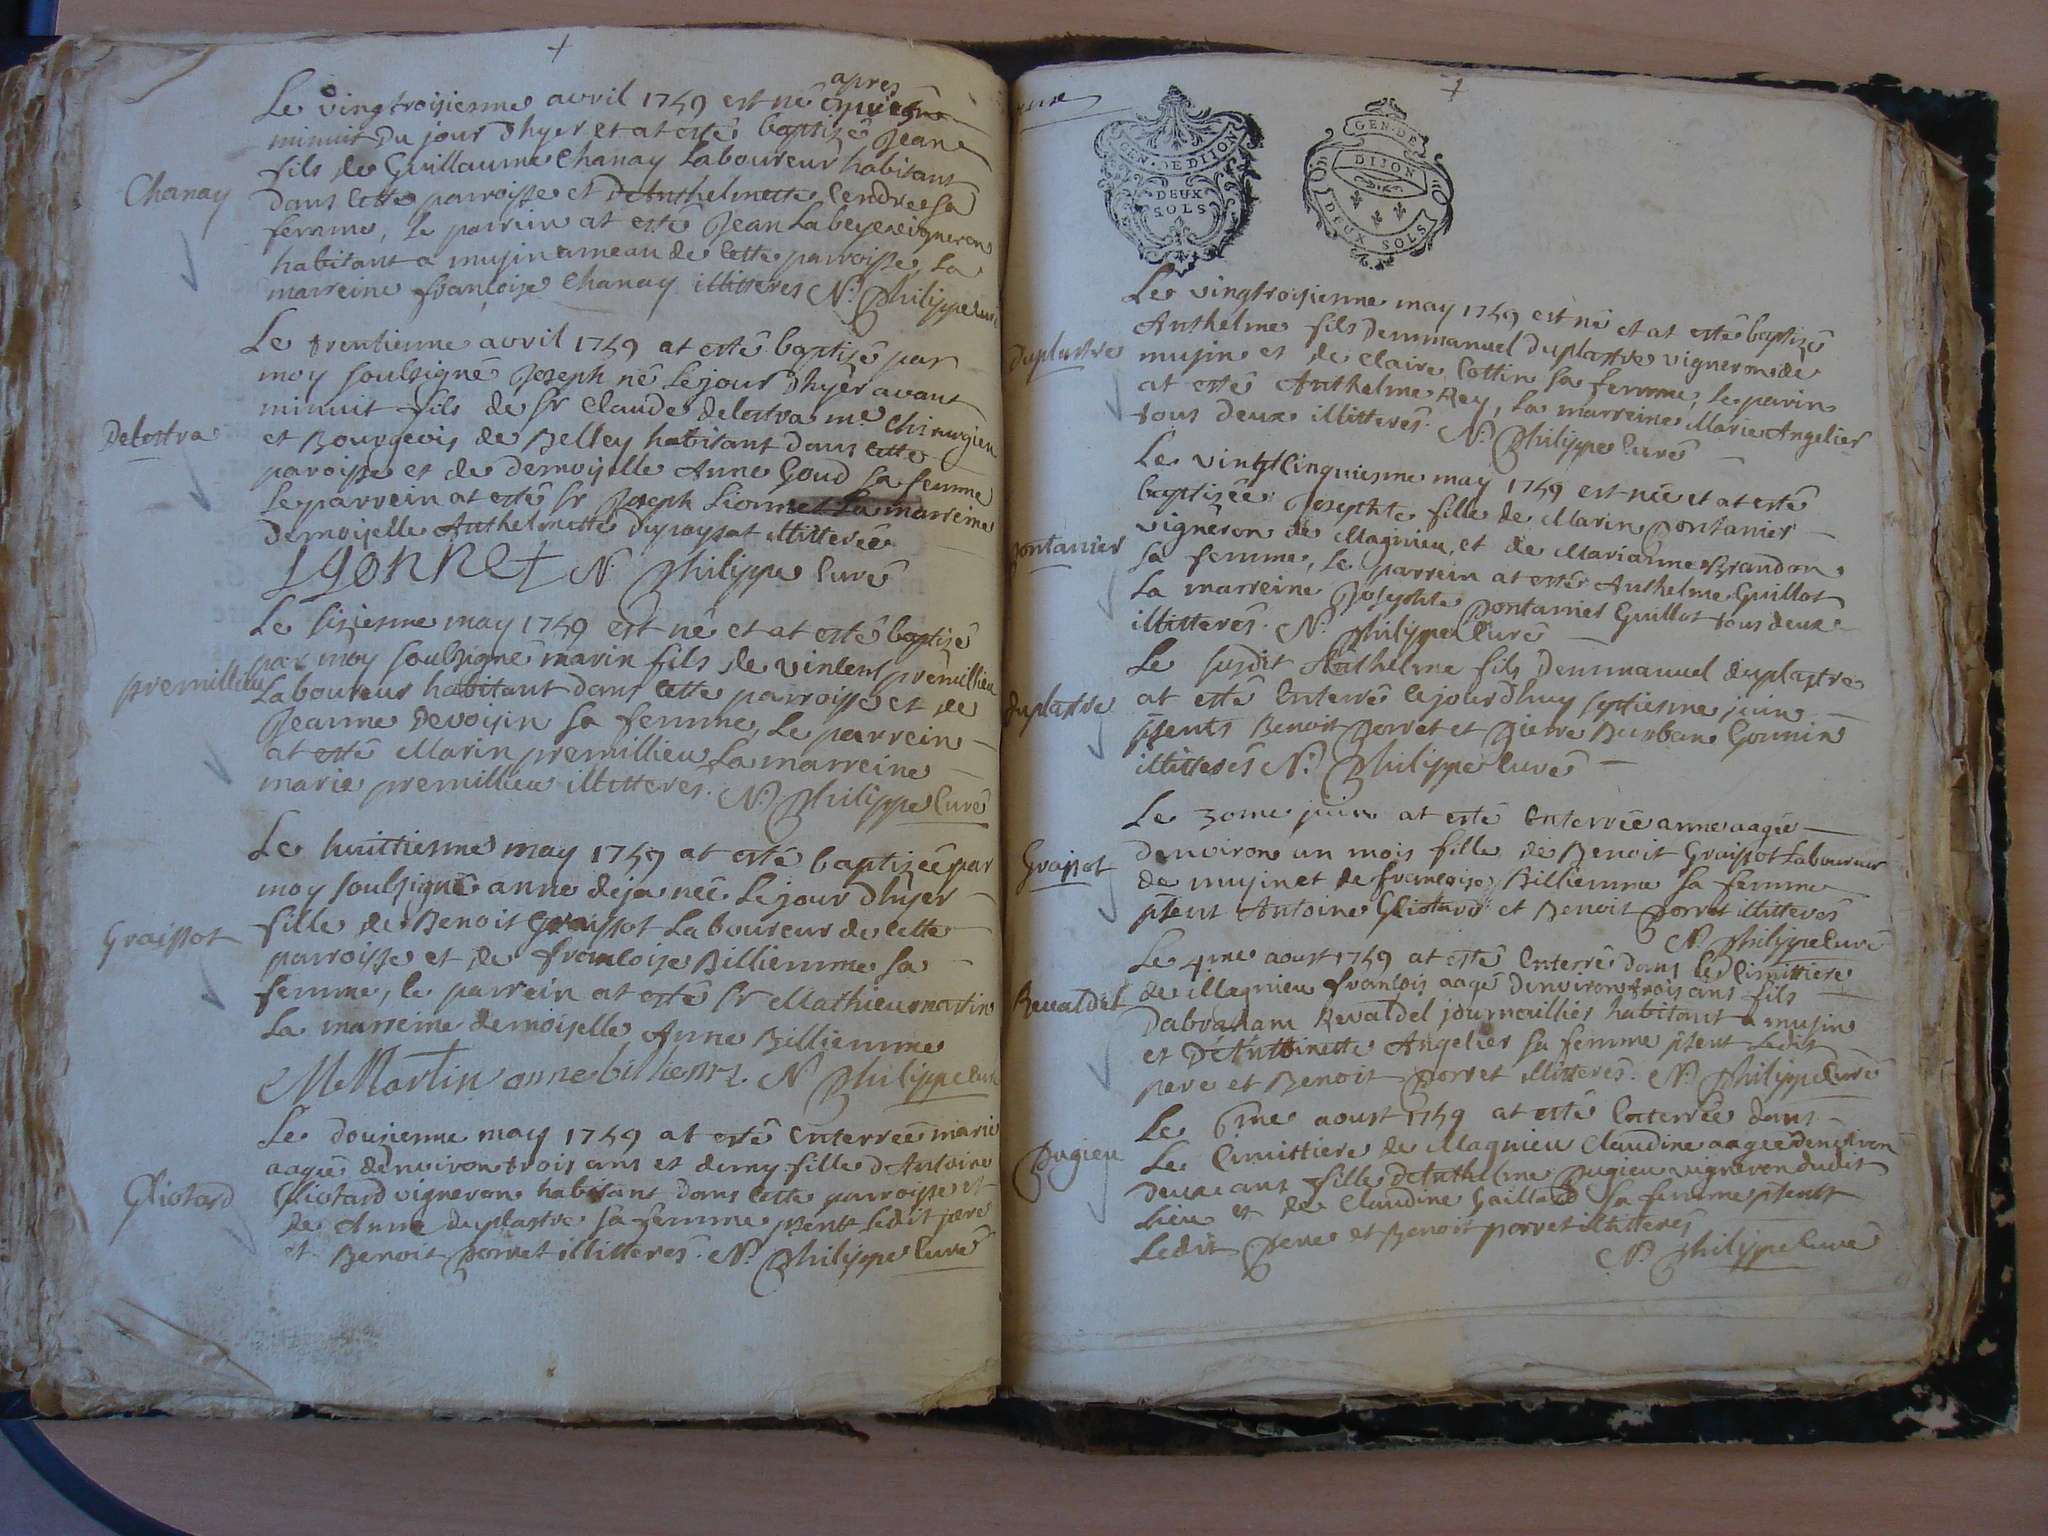 Le vingtroisiesme avril 1759 est né après
minuit du jour d'hyer et at esté baptizé Jean
fils de Guillaume Chanay Laboureur habitant
Chanay
dans cette parroisse et d'Anthelmette Cendre sa
femme, Le parrein at esté Jean Labeye vigneron
habitant a musin ameau de cette parroisse, La
marreine françoise Chanay illitteres N. Philippe curé
Le trentienne avril 1759 at esté baptizé par
moy soubsigné Joseph né Le jour d'hyer avant
minuit fils de Sr Claude delestra me Chirurgien
Delestra
et Bourgeois de Belley habitant dans cette
paroisse et de demoiselle Anne Goud sa femme
Le parrein at esté Sr Joseph Lionnet La marreine
demoiselle Anthelmette dupoysat illitterée
Lyonnet N. Philippe curé
Le siziesme may 1759 est né et at esté baptizé
par moy soubsigné marin fils de vincent premillieu
premillieu
Laboureur habitant dans cette parroisse et de
Jeanne Devoisin sa femme, Le parrein
at esté Marin premillieu La marreine
marie premillieu illitteres. N. Philippe curé
Le huittiesme may 1759 at esté baptizée par
moy soubsigné anne deja née Le jour d'hyer
fille de Benoit Graissot Laboureur de cette
Graissot
parroisse et de francoise Billiemme sa
femme, le parrein at esté Sr Mathieu martin
La marreine demoiselle Anne Billiemme
M Martin anne biliemz. N Philippe curé
Le douzienne may 1759 at esté enterrée marie
aagée denviron trois ans et demy fille d'Antoine
Gliotard vigneron habitant dans cette parroisse et
Gliotard
de Anne duplastre sa femme psents Ledit pere
et Benoit Porret illitteres. N. Philippe curé
GEN. DE DIJON
DEUX
SOLS
GEN. DE
DIJON
DEUX SOLS
Le vingtroisienne may 1759 est né et at esté baptizé
Anthelme fils demmanuel duplastre vigneron de
duplastre
musin et de Claire Cottin sa femme, Le parin
at esté Anthelme Rey, La marreine Marie Angelier
tous deux illitteres. N. Philippe curé
Le vingtcinquiesme may 1759 est née et at esté
baptizée Josephte fille de Marin Pontanier
vigneron de Magnieu, et de Marianne Brandon
pontanier
sa femme, Le parrein at esté Anthelme Guillot
La marreine Josephte Pontanier Guillot tous deux
illitteres. N. Philippe curé
Le susdit Anthelme fils Demmanuel duplastre
duplastre
at esté enterré cejourdhuy septiesme juin
psents Benoit Porret et Pierre Burban Gonnin
illitteres N. Philippe curé
Le 30me juin at esté enterrée anne aagée
denviron un mois fille de Benoit Graissot Laboureur
Graissot
de musin et de françoise Billiemme sa femme
psent Antoine Gliotard et Benoit Porret illitteres
N. Philippe curé
Le 4me aoust 1759 at esté enterré dans le Cimittiere
de Magnieu françois aagé denviron trois ans fils
Revaldel
Dabraham Revaldel journaillier habitant a musin
et D'Anttoinette Angelier sa femme psent Ledit
pere et Benoit Porret illitteres. N. Philippe curé
Le 6me aoust 1759 at esté enterrée dans
Le Cimittiere de Magnieu Claudine aagée denviron
Pugieu
deux ans fille D'Anthelme Pugieu vigneron dudit
Lieu et de Claudine Gaillard sa femme psents
Ledit Pere et Benoit porret illitteres
N. Philippe curé